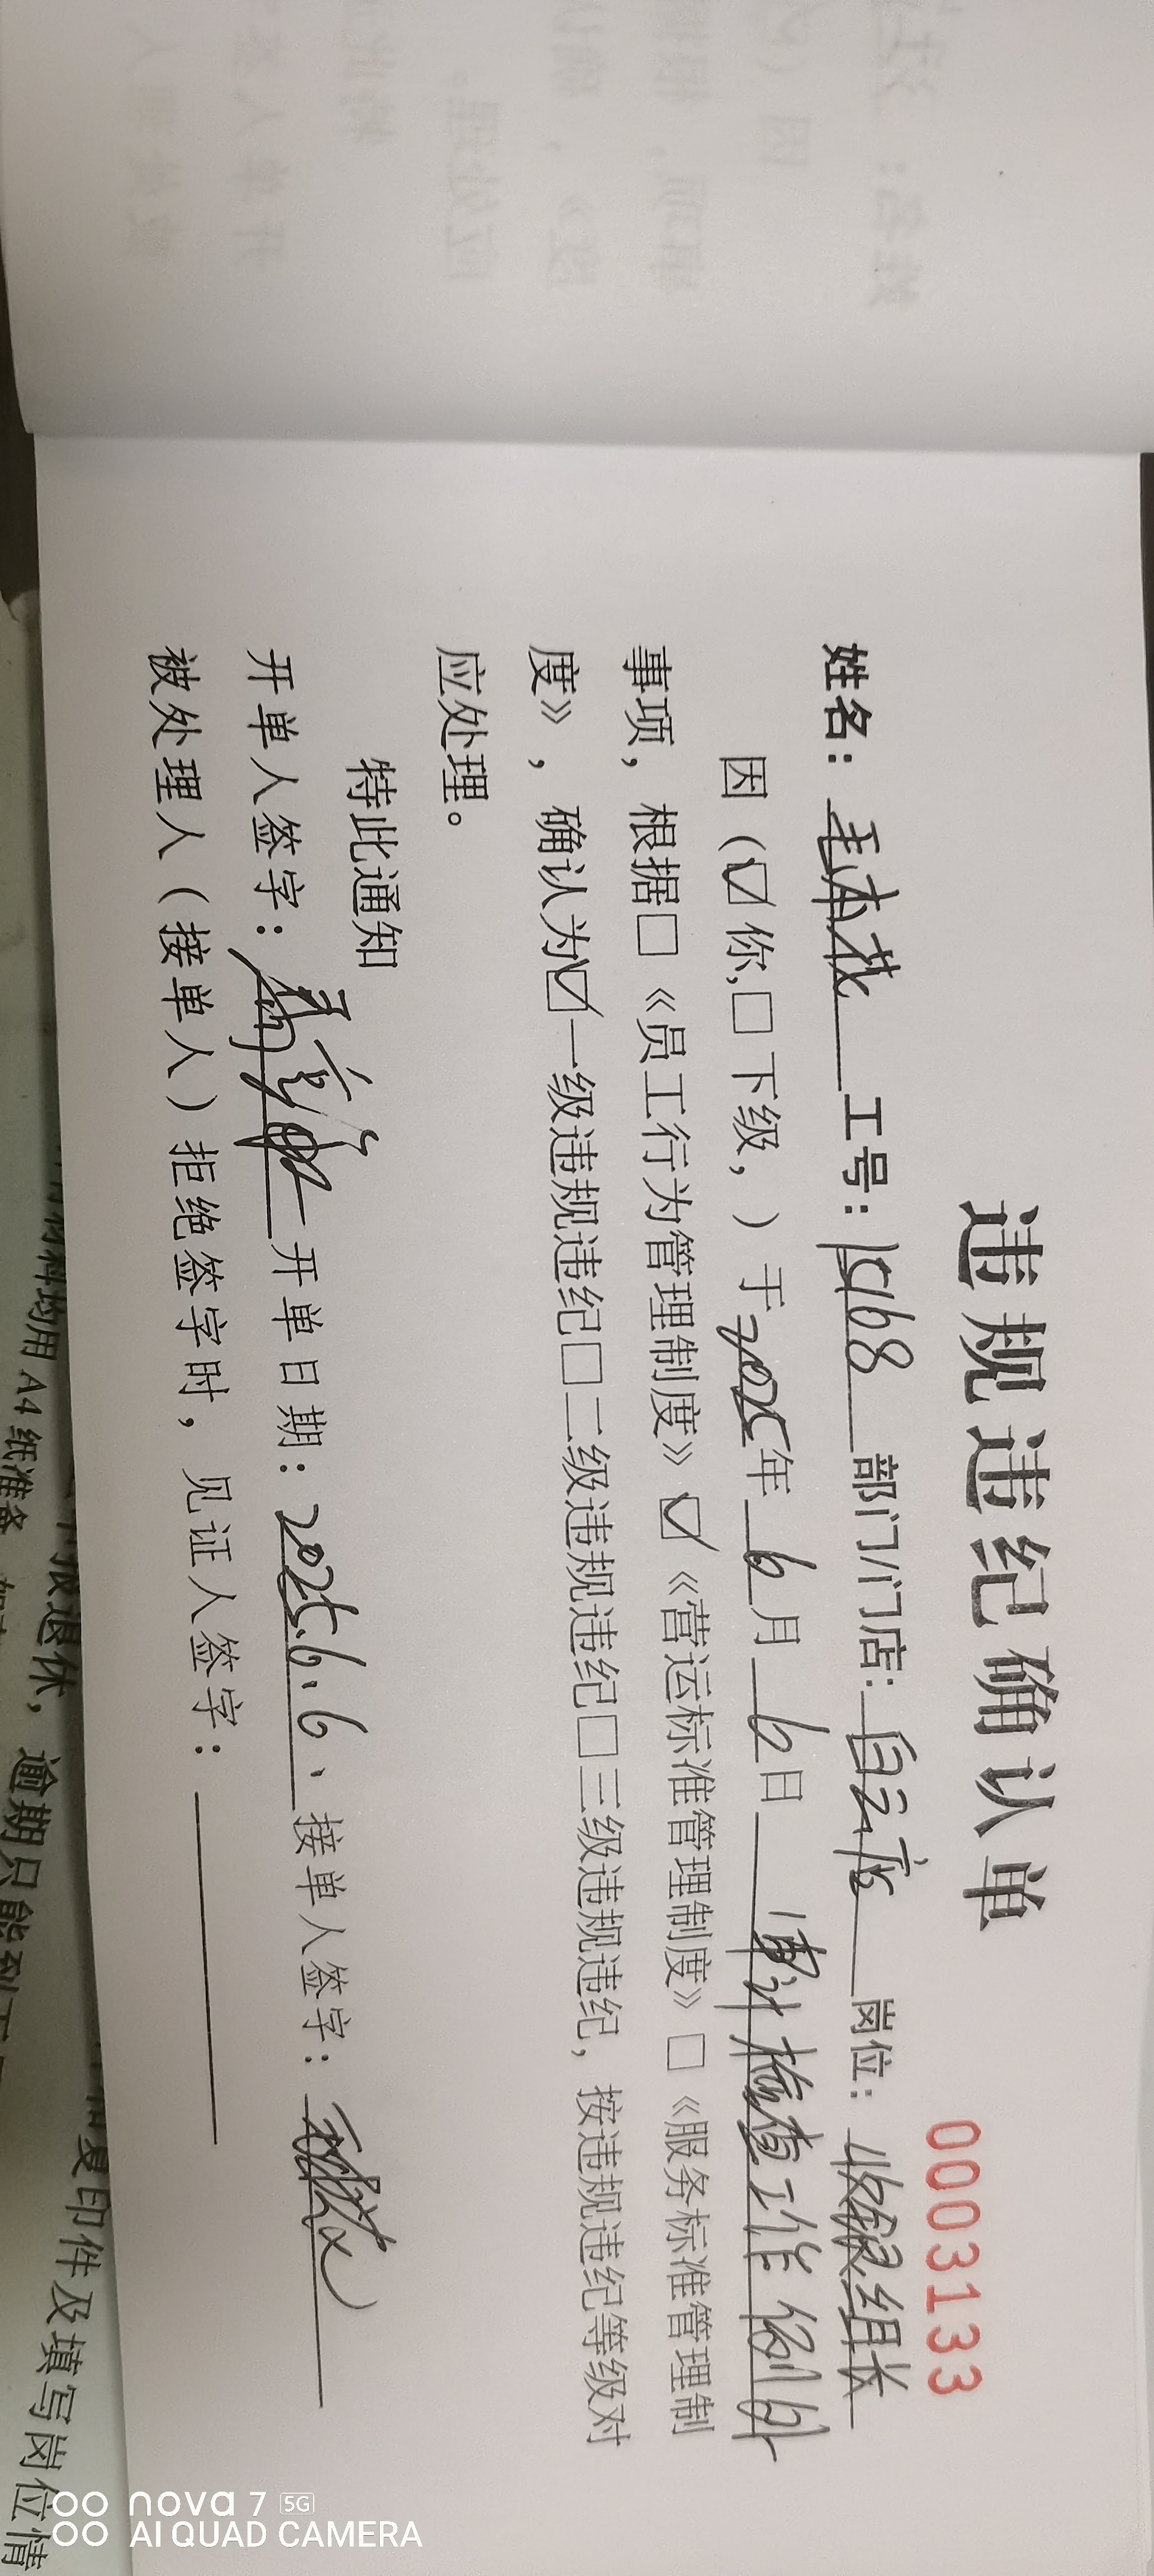 违规违纪确认单
0003133
姓名：毛本花 工号：1968 部门/门店：白云店 岗位：收银组长
因（☑你,□下级，）于2025年6月6日 审计检查工作例外
事项，根据□《员工行为管理制度》☑《营运标准管理制度》□《服务标准管理制
度》，确认为☑一级违规违纪□二级违规违纪□三级违规违纪，按违规违纪等级对
应处理。
特此通知
开单人签字： 开单日期：2025.6.6. 接单人签字：
被处理人（接单人）拒绝签字时，见证人签字：
复印件及填写岗位情
报退休，逾期只能到
材料均用 A4 纸准备
nova 7 5G
AI QUAD CAMERA